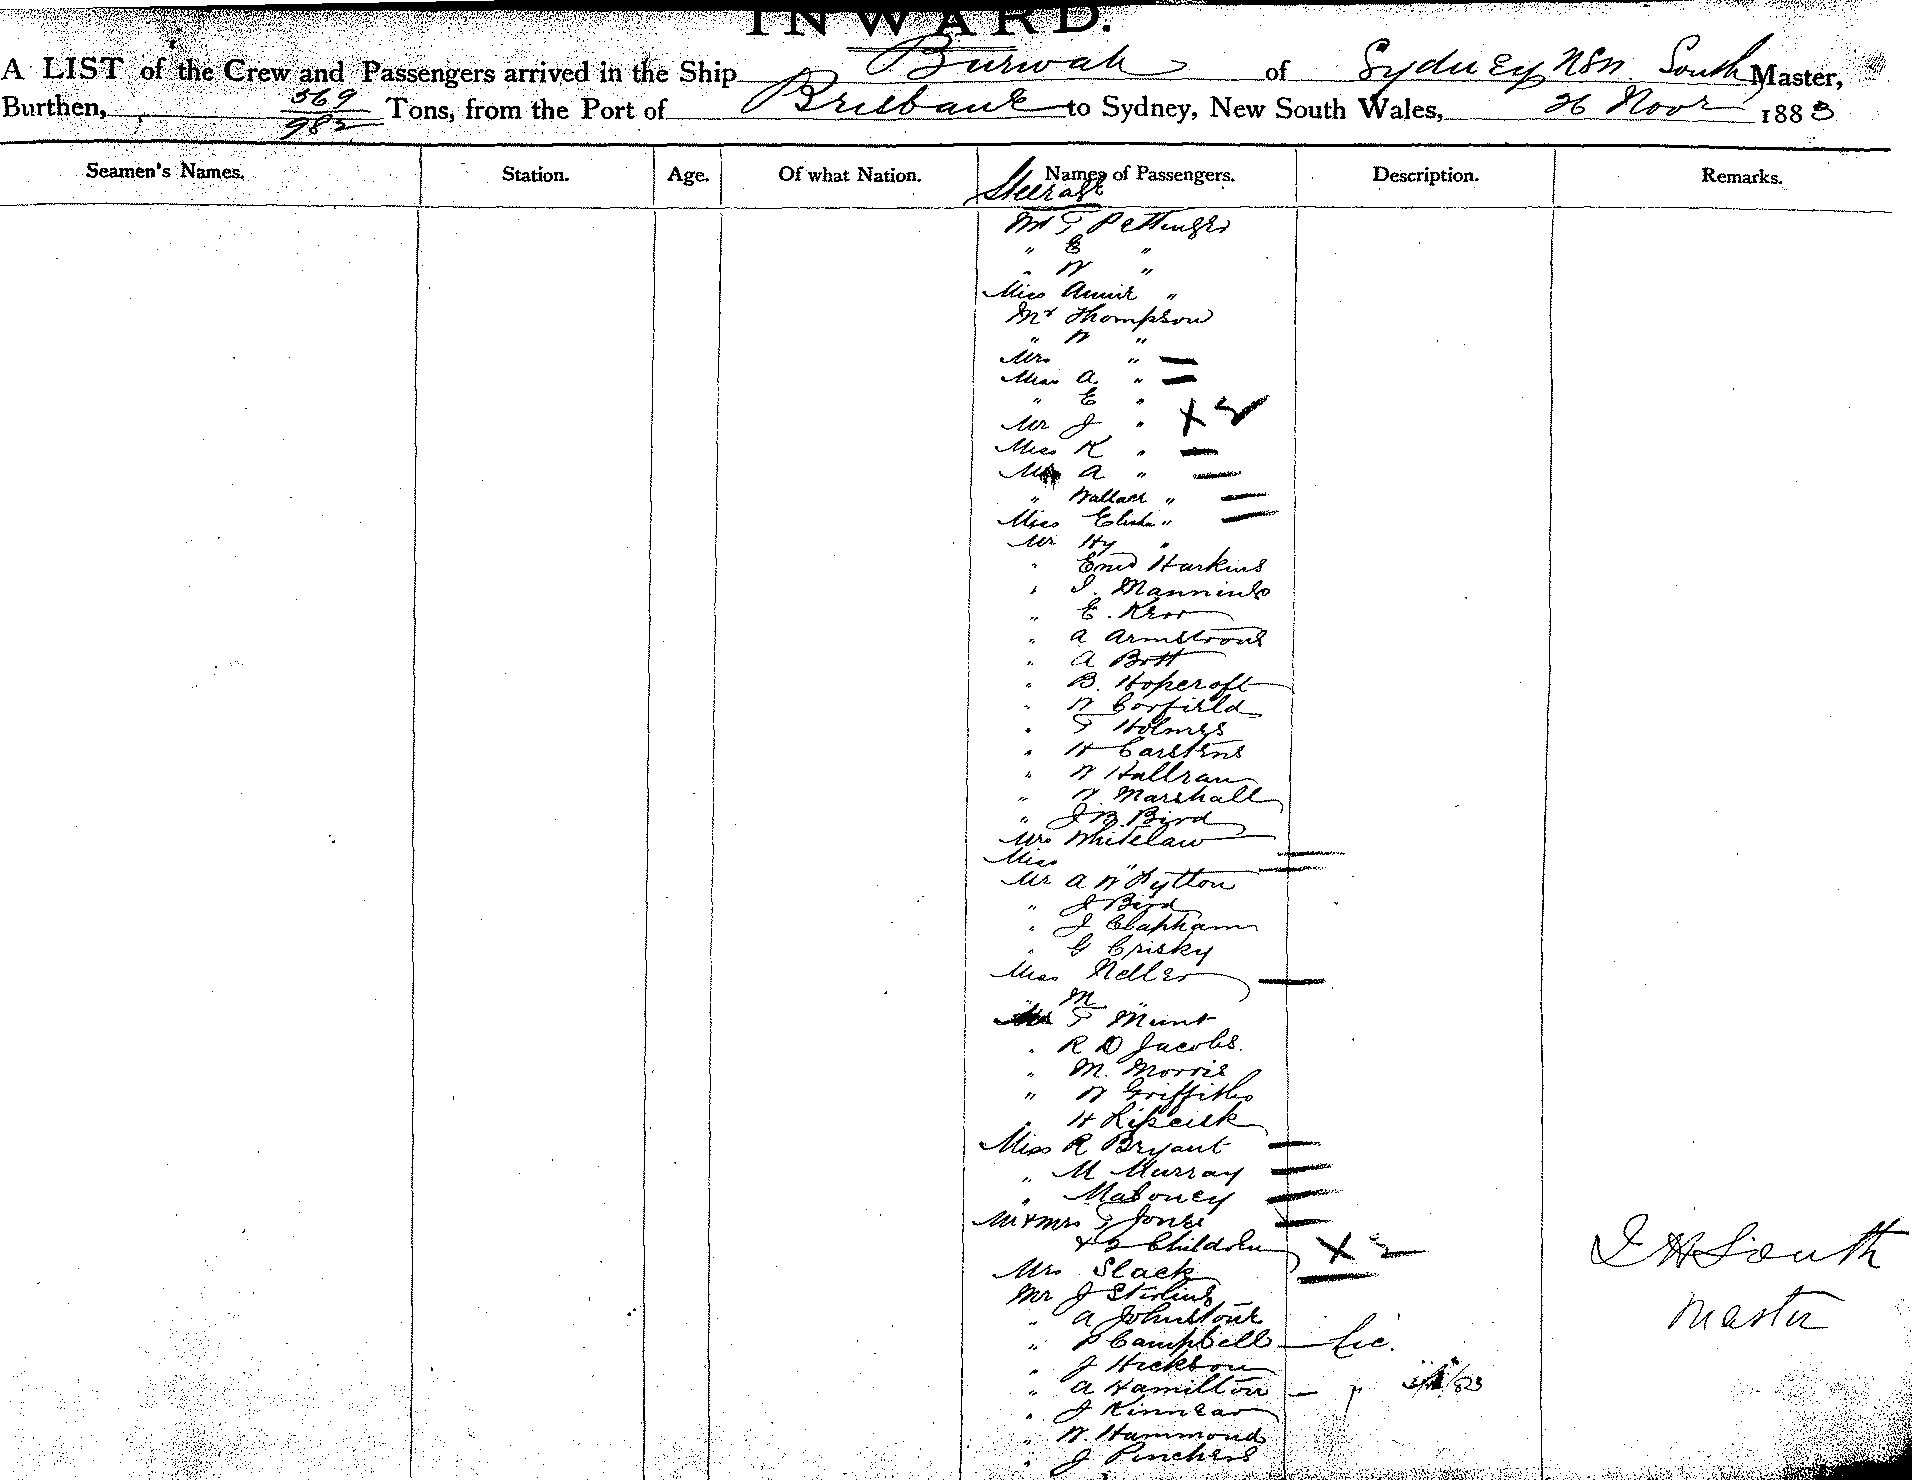 INWARD.
A LIST of the Crew and Passengers arrived in the Ship Burwah of Sydney NSW. South Master,
Burthen, 569/982 Tons, from the Port of Brisbane to Sydney, New South Wales, 26 Novr 1883
Seamen's Names. Station. Age. Of what Nation. Names of Passengers. Description. Remarks.
Steerage
Mr T Pettinger
" E "
" W "
Miss Annie "
Mr Thompson
" W "
Mrs "
Miss A. "
" E "
Mr J " X 2
Miss K "
A "
" Wallace "
Miss "
Mr Hy "
" Harkins
" Manning
" E.
" A Armstrong
" A Bott
" B. Hopcroft
" W Corfield
" T Holmes
" H Carstens
" W Hallran
" W. Marshall
" J B Bird
Mrs Whitelaw
Miss "
Mr A W Pytton
" J Bird
" J Clapham
" G Crisky
Miss Neller
" M "
T Munt
" R D Jacobs.
" M. Morris
" W Griffiths
" H
Miss R Bryant
" M Murray
" Maloney
Mr & Mrs T Jones
& 2 Children X 2
Mrs Slack
Mr J Stirling
" A Johnstone
" Campbell
" J Hickson
" A Hamilton
" J Kinnear
" W. Hammond
" J Pinchers
South
Master